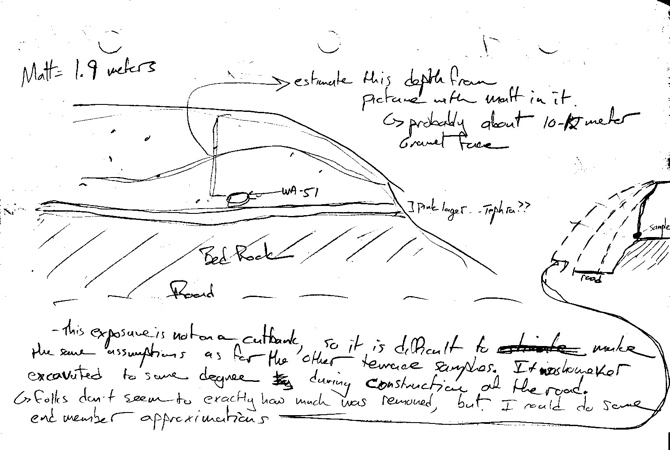 Matt = 1.9 meters
estimate this depth from
picture with matt in it.
↳ probably about 10- meter
Gravel face
WA-51
] pink layer... Tephra??
Bed Rock
Road
sample
road
- this exposure is not on a cutbank, so it is difficult to make
the same assumptions as for the other terrace samples. It was
excavated to some degree during construction of the road.
↳ folks don't seem to exactly how much was removed, but I could do some
end member approximations